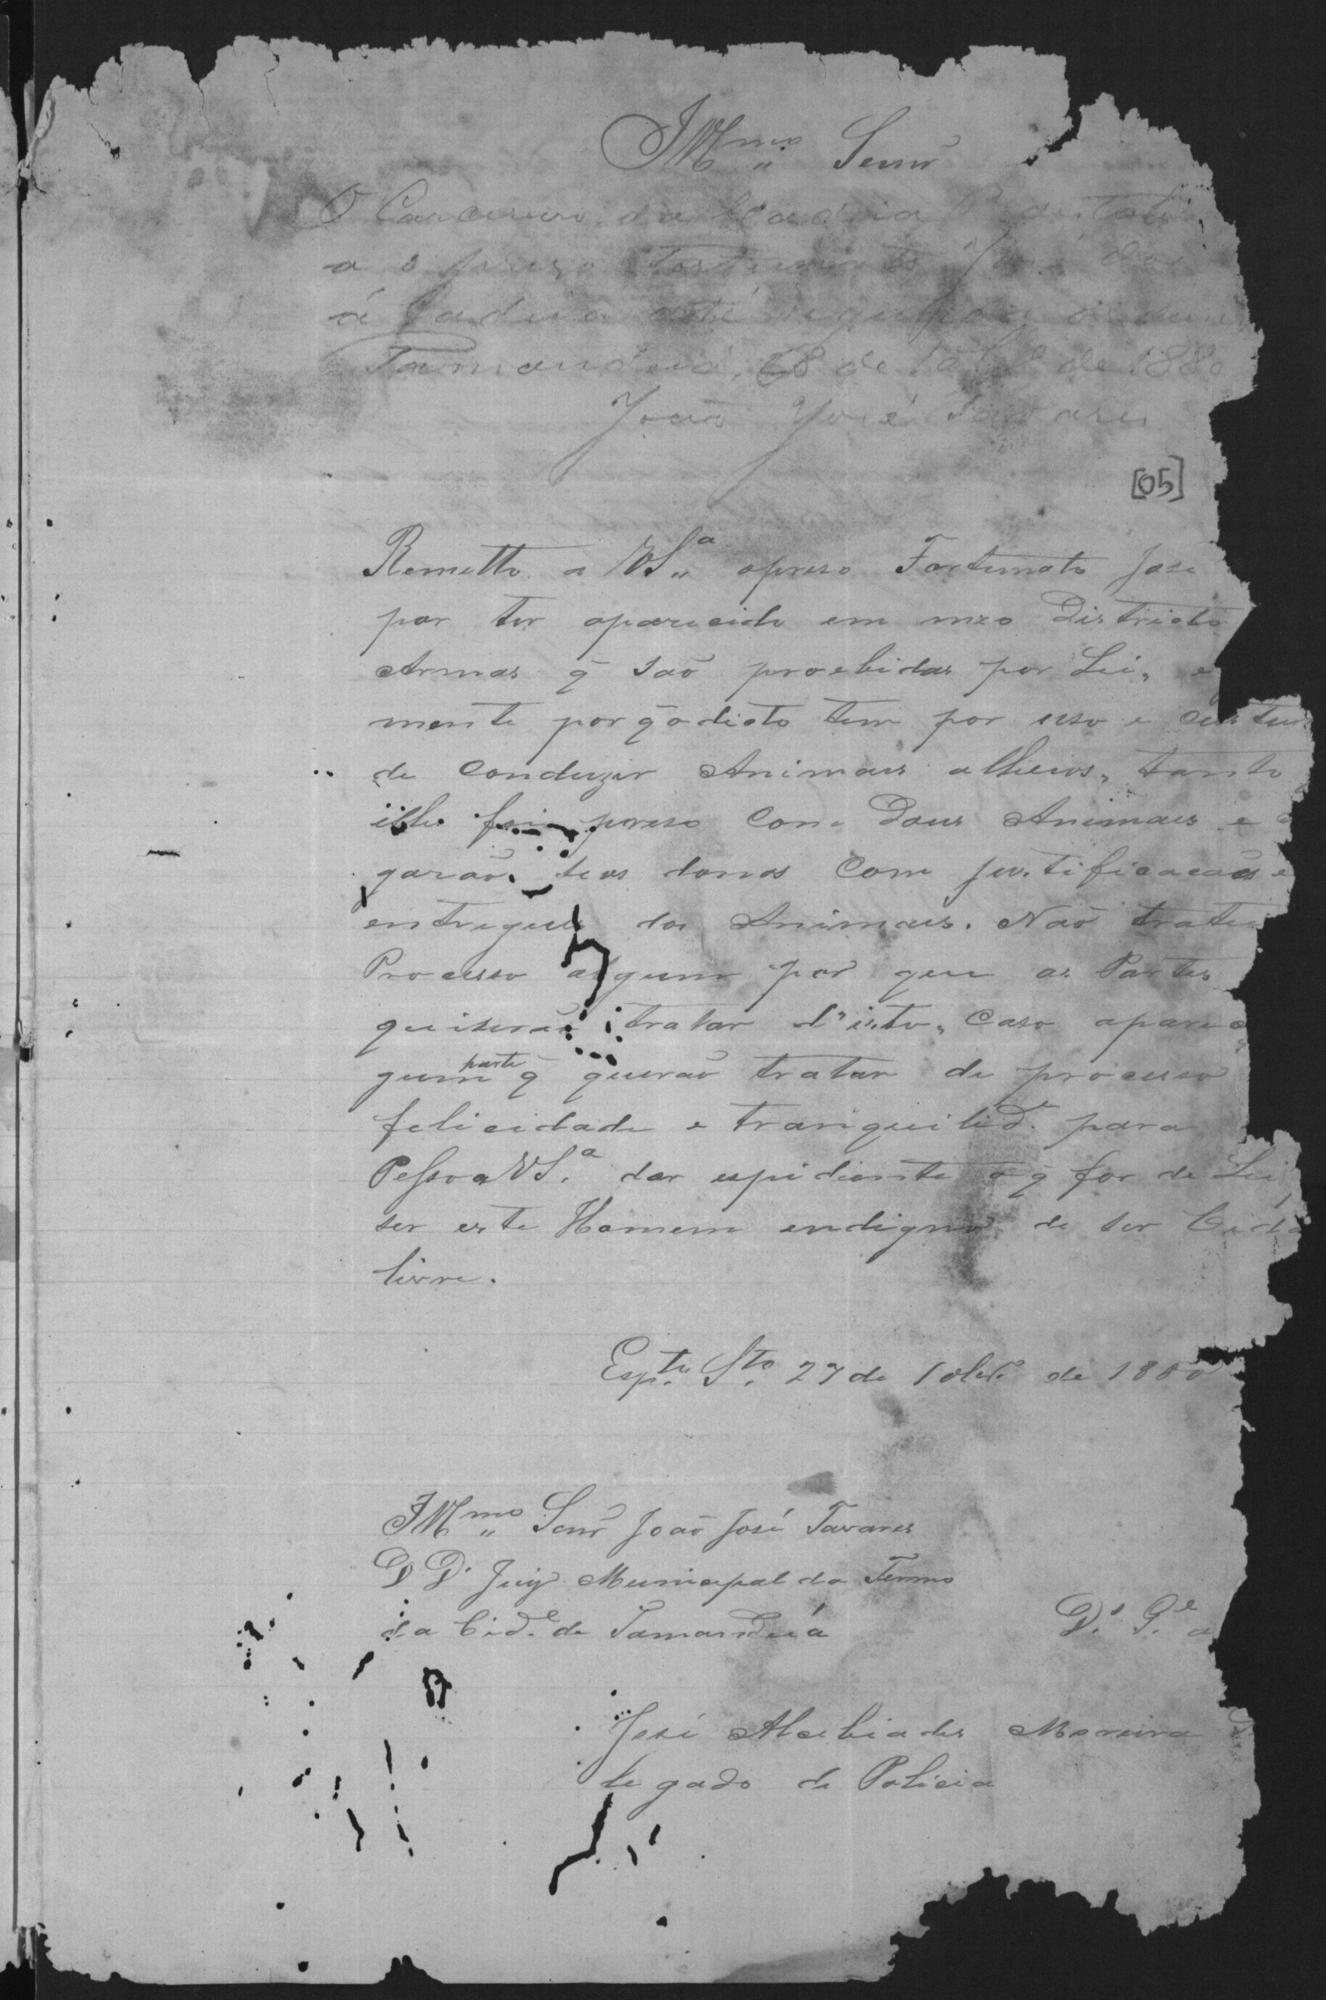 Illmo Senr
O Carcereiro da Cadeia
a o prezo Fortunato José dos
á Cadeia até segunda ordem
Tamanduá, 28 de 10br.o de 1880
João José Tavares
[05]
Remetto a VS.a opreso Fortunato José
por ter aparecido em meo Districto
Armas q̃ são proebidas por Lei, e
mente porq̃ odicto tem por uso e custum
de conduzir Animais alheios, tanto
ille foi preso com Dous Animaes e
garão seos donos com justificacaõs e
entreguei dos Animais. Não tratei
Processo algum por que as Partes
quiserão tratar d'isto, caso apareca
gum parte q̃ querão tratar de processo
felicidade e tranquilid.e para
Pessoa VS.a dar espidiente o q̃ for de Lei
ser este Homem endigno de ser Cida
livre.
Esp.to S.to 27 de 10br.o de 1880
Illmo Senr João José Tavares
D D. Juiz Municipal do Termo
da Cid.e de Tamanduá
D.s G.e a
José Alcebiades Moreira
legado de Policia